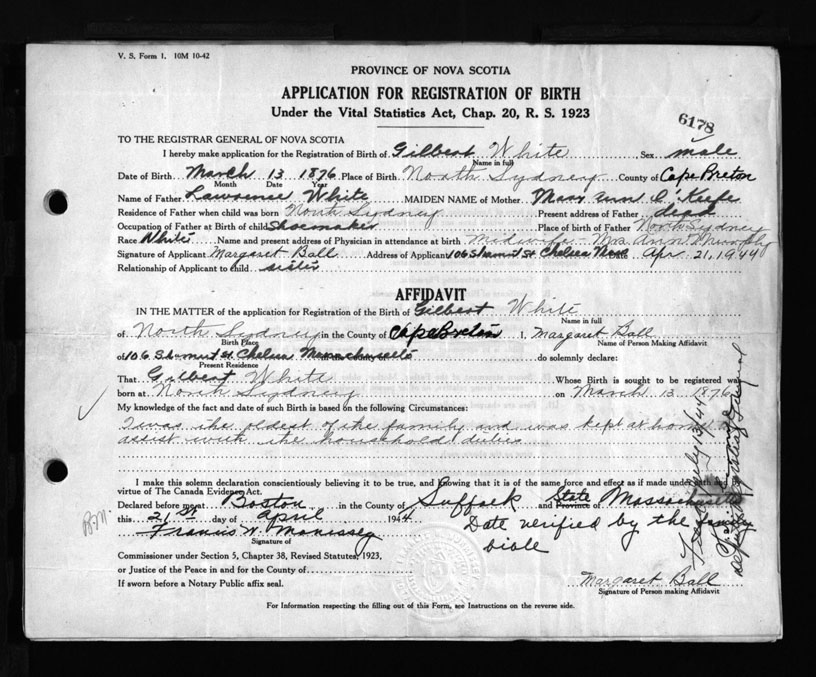 V. S. Form 1. 10M 10-42
PROVINCE OF NOVA SCOTIA
APPLICATION FOR REGISTRATION OF BIRTH
Under the Vital Statistics Act, Chap. 20, R. S. 1923
6178
TO THE REGISTRAR GENERAL OF NOVA SCOTIA
I hereby make application for the Registration of Birth of Gilbert White Sex male
Name in full
Date of Birth March 13 1876 Place of Birth North Sydney County of Cape Breton
Month Date Year
Name of Father Lawrence White MAIDEN NAME of Mother Mary Ann O'Keefe
Residence of Father when child was born North Sydney Present address of Father dead
Occupation of Father at Birth of child Shoemaker Place of Birth of Father North Sydney
Race White Name and present address of Physician in attendance at birth midwife - Mrs Ann Murphy
Signature of Applicant Margaret Ball Address of Applicant 106 Shawmut St Chelsea Mass Apr 21, 1944
Relationship of Applicant to child sister
AFFIDAVIT
IN THE MATTER of the application for Registration of the Birth of Gilbert White
Name in full
of North Sydney in the County of Cape Breton I, Margaret Ball
Birth Place Name of Person Making Affidavit
of 106 Shawmut St. Chelsea Massachusetts do solemnly declare:
Present Residence
That Gilbert White Whose Birth is sought to be registered was
born at North Sydney on March 13 1876
My knowledge of the fact and date of such Birth is based on the following Circumstances:
I was the oldest of the family and was kept at home to
assist with the household duties
I make this solemn declaration conscientiously believing it to be true, and knowing that it is of the same force and effect as if made under oath and
virtue of The Canada Evidence Act.
Declared before me at Boston in the County of Suffolk and State Province of Massachusetts
this 21st day of April 1944
Date verified by the family
bible
B.M.
Francis W. Morrissey
Signature of
Commissioner under Section 5, Chapter 38, Revised Statutes, 1923,
or Justice of the Peace in and for the County of
If sworn before a Notary Public affix seal.
Margaret Ball
Signature of Person making Affidavit
For Information respecting the filling out of this Form, see Instructions on the reverse side.
July 13/44
Deputy Registrar General